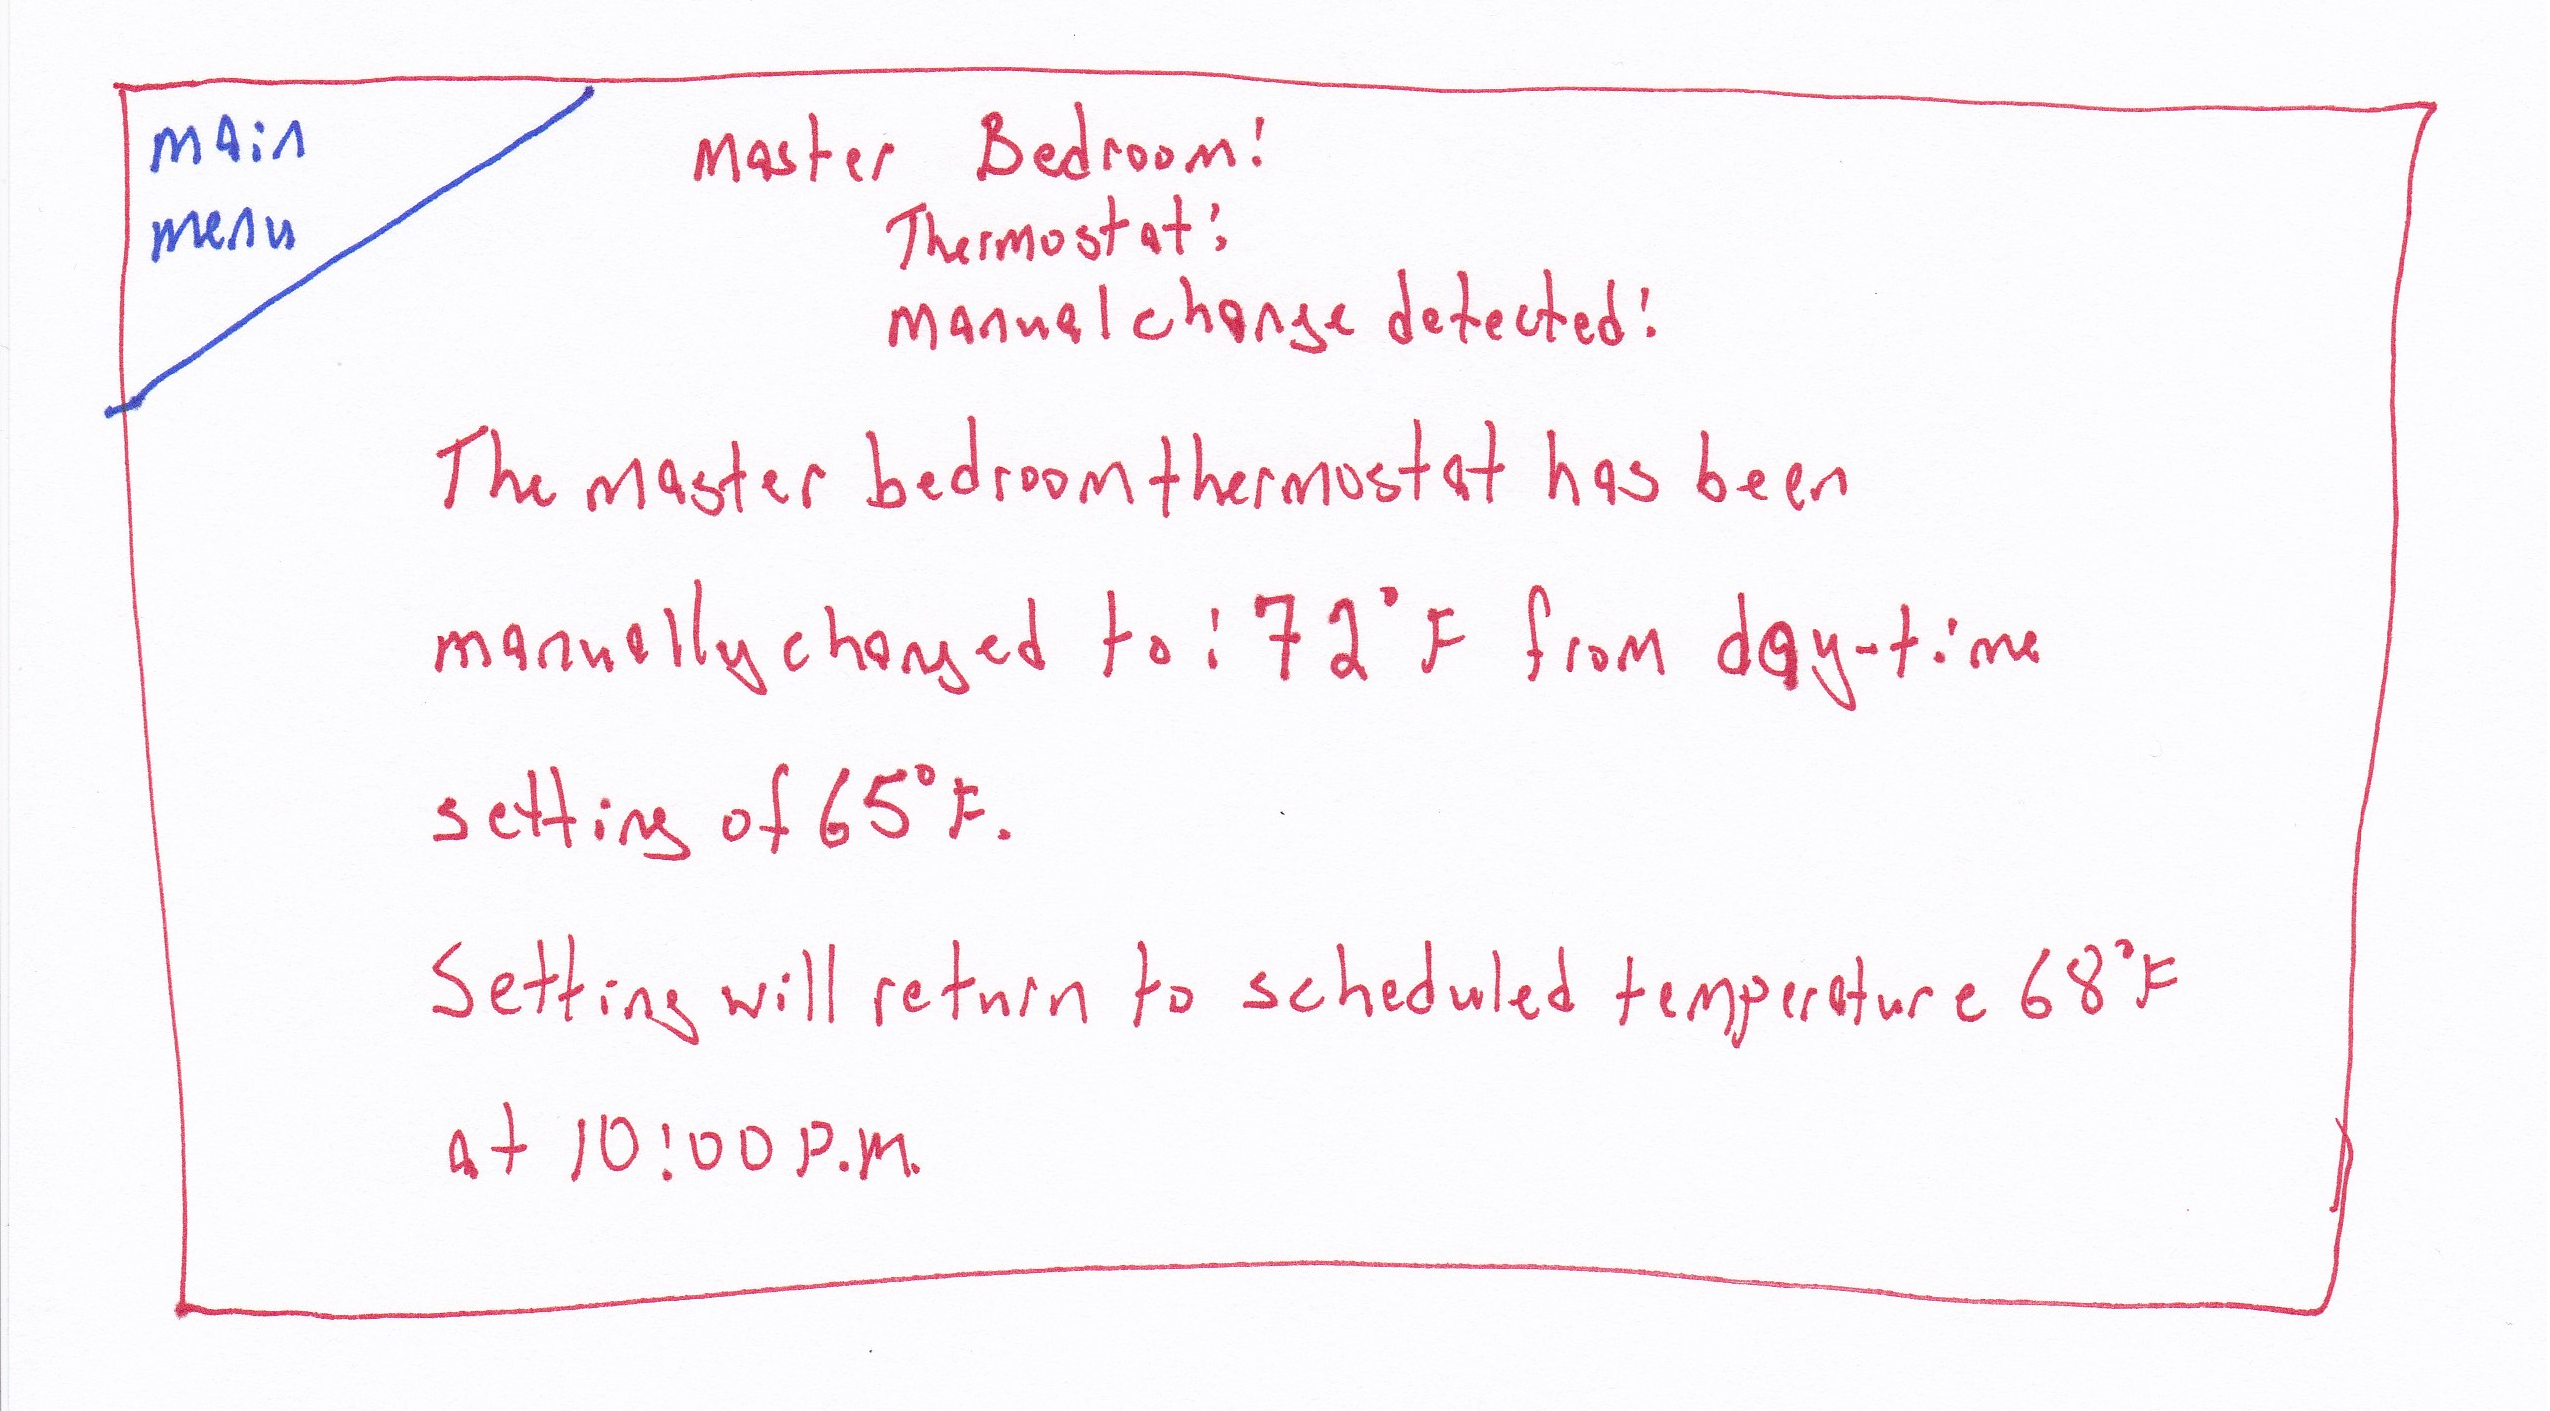 main
menu
Master Bedroom:
Thermostat:
Manual change detected:
The master bedroom thermostat has been
manually changed to: 72°F from day-time
setting of 65°F.
Setting will return to scheduled temperature 68°F
at 10:00 P.M.